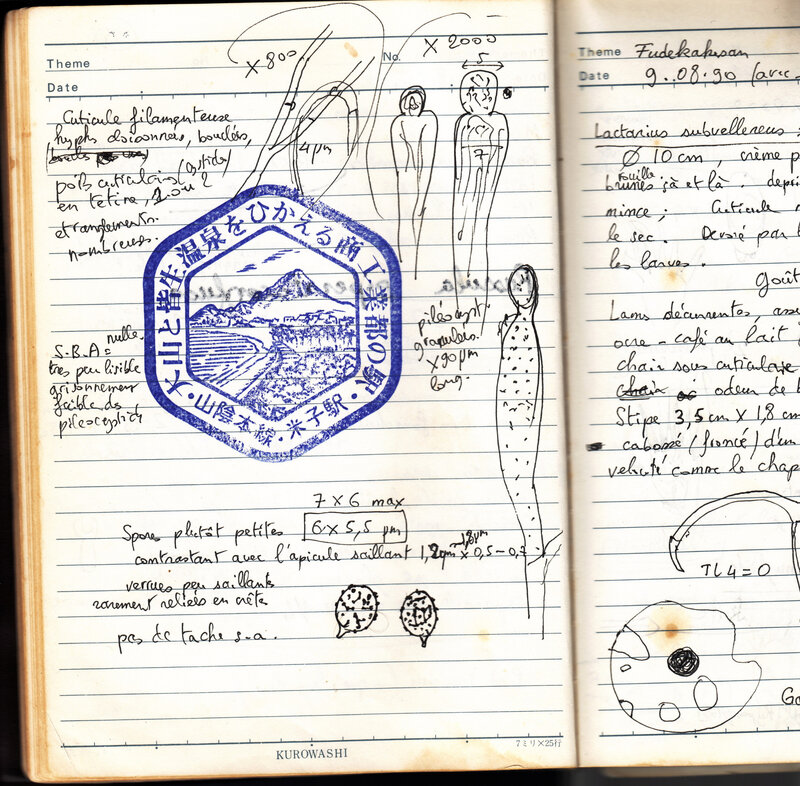 Theme
Date
No.
X 800
X 2000
5
4 µm
7
Cuticule filamenteuse
hyphes cloisonnées, bouclées,
poils cuticulaires
en tétine, 1 ou 2
étranglements
nombreux.
大山と皆生温泉をひかえる商工業都の駅
・山陰本線・米子駅・
nulle.
S.B.A =
très peu lisible
grisonnement
faible des
piléocystides
piléocyst.
granulées.
x 90 µm
long.
7 x 6 max
Spores plutôt petites 6 x 5,5 µm
contrastant avec l'apicule saillant
verrues peu saillantes
rarement reliées en crête
pas de tache s.a.
KUROWASHI
7ミリ×25行
Theme Fudekakusan
Date 9..08.90 (avec
Lactarius subvellereus
Ø 10 cm, crème
rouille
brunes çà et là.
mince; Cuticule
le sec. Dévoré par
les larves.
Goût
Lams décurrentes,
ocre - café au lait
chair sous cuticulaire
odeur de
Stipe 3,5 cm x 1,8 cm
cabossé (froncé) d'un
velouté comme le chap
TL4 = 0